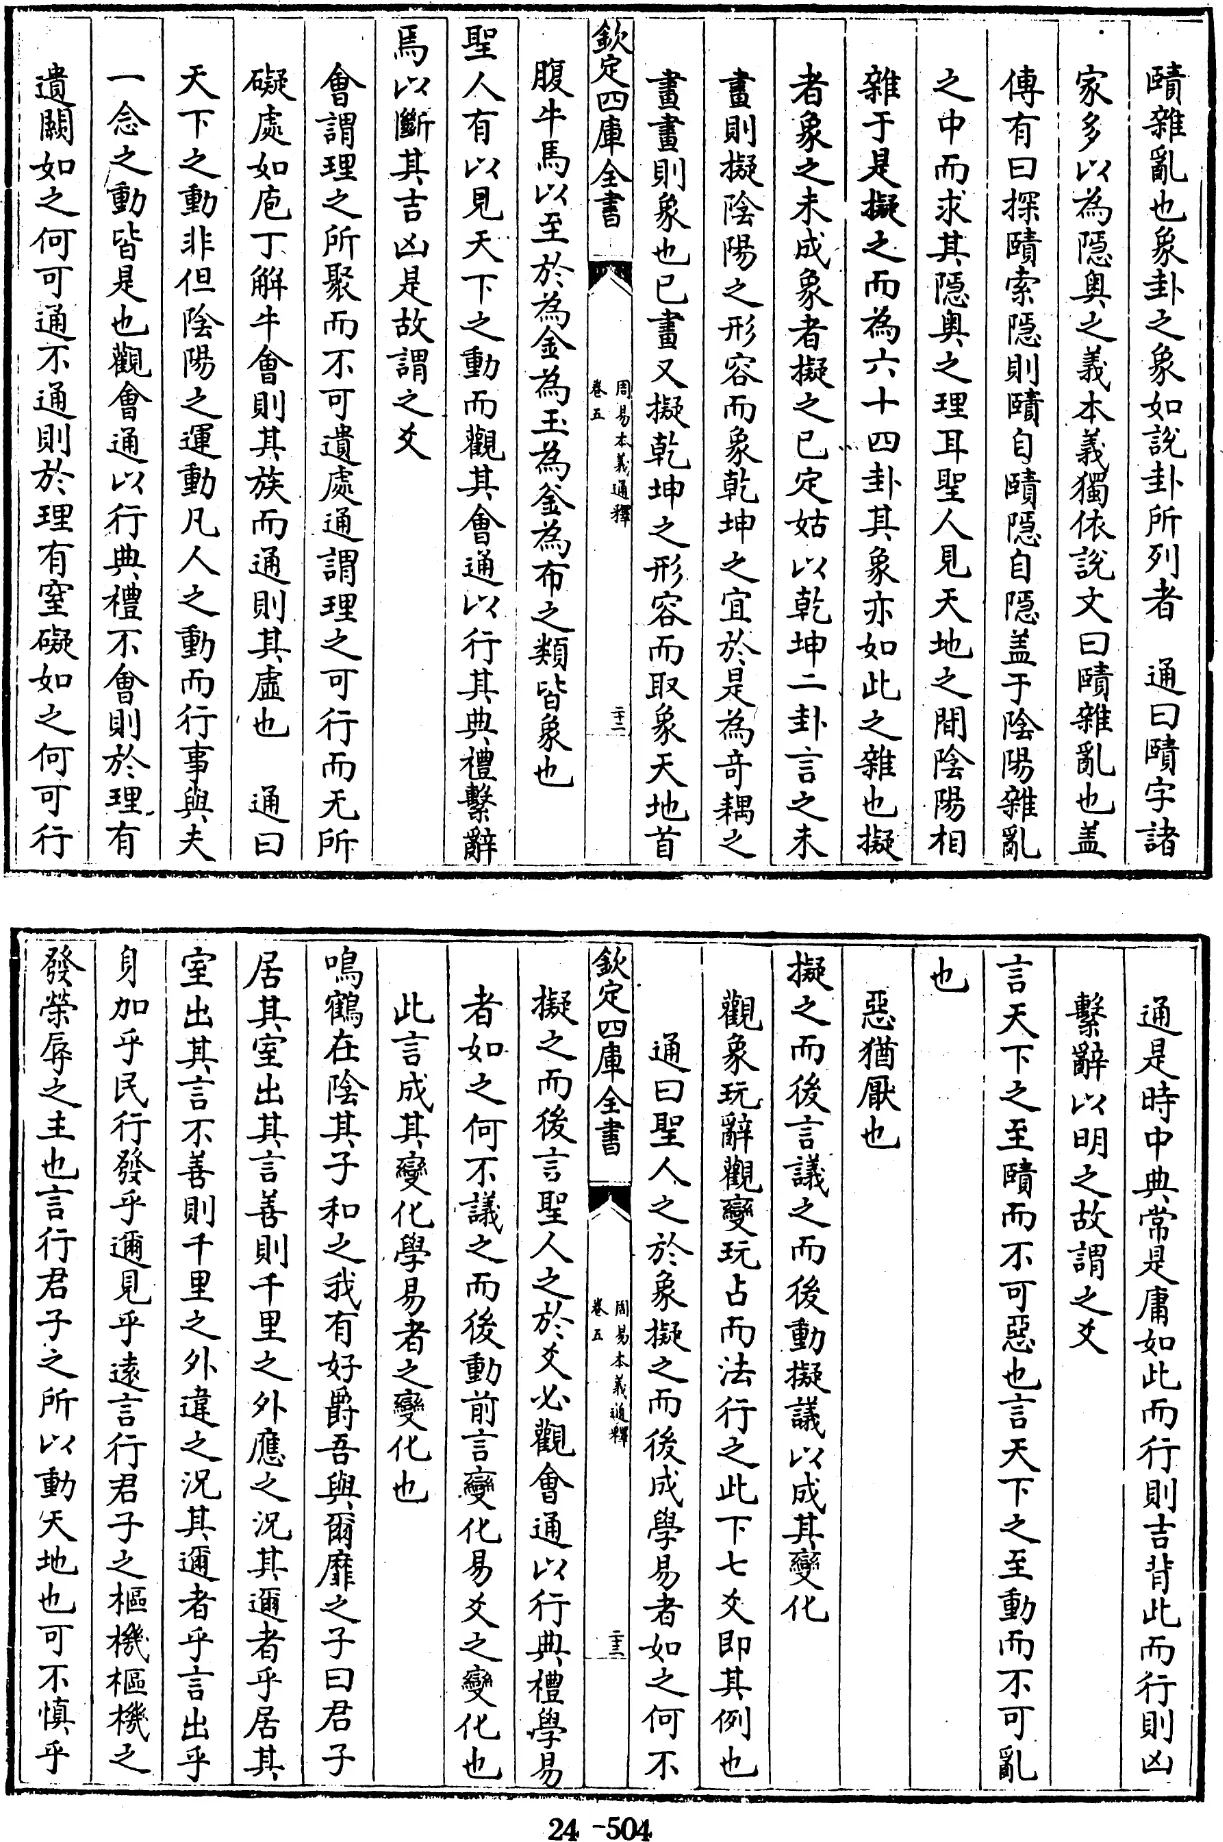 賾雜亂也象卦之象如說卦所列者　通曰賾字諸
家多以為隱奧之義本義獨依說文曰賾雜亂也盖
傳有曰探賾索隱則賾自賾隱自隱盖于陰陽雜亂
之中而求其隱奧之理耳聖人見天地之間陰陽相
雜于是擬之而為六十四卦其象亦如此之雜也擬
者象之未成象者擬之已定姑以乾坤二卦言之未
畫則擬陰陽之形容而象乾坤之宜於是為竒耦之
畫畫則象也已畫又擬乾坤之形容而取象天地首
欽定四庫全書
周易本義通釋
卷五
二十二
腹牛馬以至於為金為玉為釡為布之類皆象也
聖人有以見天下之動而觀其會通以行其典禮繫辭
焉以斷其吉凶是故謂之爻
會謂理之所聚而不可遺處通謂理之可行而无所
礙處如庖丁解牛會則其族而通則其虛也　通曰
天下之動非但陰陽之運動凡人之動而行事與夫
一念之動皆是也觀會通以行典禮不會則於理有
遺闕如之何可通不通則於理有窒礙如之何可行
通是時中典常是庸如此而行則吉背此而行則凶
繫辭以明之故謂之爻
言天下之至賾而不可惡也言天下之至動而不可亂
也
惡猶厭也
擬之而後言議之而後動擬議以成其變化
觀象玩辭觀變玩占而法行之此下七爻即其例也
通曰聖人之於象擬之而後成學易者如之何不
欽定四庫全書
周易本義通釋
卷五
二十三
擬之而後言聖人之於爻必觀會通以行典禮學易
者如之何不議之而後動前言變化易爻之變化也
此言成其變化學易者之變化也
鳴鶴在陰其子和之我有好爵吾與爾靡之子曰君子
居其室出其言善則千里之外應之況其邇者乎居其
室出其言不善則千里之外違之況其邇者乎言出乎
身加乎民行發乎邇見乎遠言行君子之樞機樞機之
發榮辱之主也言行君子之所以動天地也可不慎乎
24-504